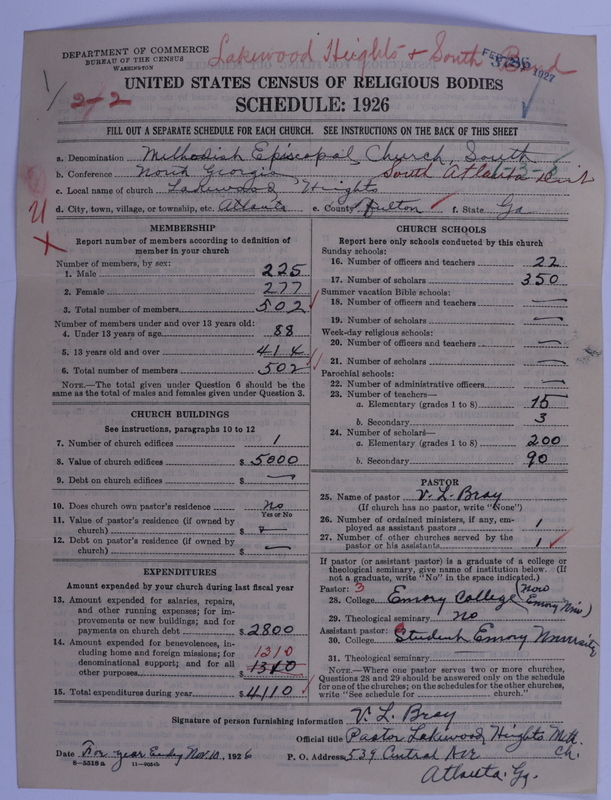 DEPARTMENT OF COMMERCE
BUREAU OF THE CENSUS
WASHINGTON
Lakewood Heights & South Bend
FEB 1927
2-2
UNITED STATES CENSUS OF RELIGIOUS BODIES
SCHEDULE: 1926
FILL OUT A SEPARATE SCHEDULE FOR EACH CHURCH. SEE INSTRUCTIONS ON THE BACK OF THIS SHEET
a. Denomination Methodist Episcopal Church, South
b. Conference North Georgia South Atlanta Dist
c. Local name of church Lakewood Heights
d. City, town, village, or township, etc. Atlanta e. County Fulton f. State Ga
MEMBERSHIP
Report number of members according to definition of
member in your church
Number of members, by sex:
1. Male 225
2. Female 277
3. Total number of members 502
Number of members under and over 13 years old:
4. Under 13 years of age 88
5. 13 years old and over 414
6. Total number of members 502
NOTE.—The total given under Question 6 should be the
same as the total of males and females given under Question 3.
CHURCH BUILDINGS
See instructions, paragraphs 10 to 12
7. Number of church edifices 1
8. Value of church edifices $ 5000
9. Debt on church edifices $ —
10. Does church own pastor's residence No
Yes or No
11. Value of pastor's residence (if owned by
church) $ —
12. Debt on pastor's residence (if owned by
church) $ —
EXPENDITURES
Amount expended by your church during last fiscal year
13. Amount expended for salaries, repairs,
and other running expenses; for im-
provements or new buildings; and for
payments on church debt $ 2800
14. Amount expended for benevolences, in-
cluding home and foreign missions; for 1310
denominational support; and for all
other purposes $ 1340
15. Total expenditures during year $ 4110
CHURCH SCHOOLS
Report here only schools conducted by this church
Sunday schools:
16. Number of officers and teachers 22
17. Number of scholars 350
Summer vacation Bible schools:
18. Number of officers and teachers —
19. Number of scholars —
Week-day religious schools:
20. Number of officers and teachers —
21. Number of scholars —
Parochial schools:
22. Number of administrative officers —
23. Number of teachers—
a. Elementary (grades 1 to 8) 15
b. Secondary 3
24. Number of scholars—
a. Elementary (grades 1 to 8) 200
b. Secondary 90
PASTOR
25. Name of pastor V. L. Bray
(If church has no pastor, write "None")
26. Number of ordained ministers, if any, em-
ployed as assistant pastors 1
27. Number of other churches served by the
pastor or his assistants 1
If pastor (or assistant pastor) is a graduate of a college or
theological seminary, give name of institution below. (If
not a graduate, write "No" in the space indicated.)
Pastor: 3
28. College Emory College (Now Emory Univ)
29. Theological seminary No
Assistant pastor:
30. College Student Emory University
31. Theological seminary
NOTE.—Where one pastor serves two or more churches,
Questions 28 and 29 should be answered only on the schedule
for one of the churches; on the schedules for the other churches,
write "See schedule for church."
Signature of person furnishing information V. L. Bray
Official title Pastor Lakewood Heights Meth. Ch.
Date For year Ending Nov. 10, 1926 P. O. Address 539 Central Ave
8—5518 a Atlanta. Ga.